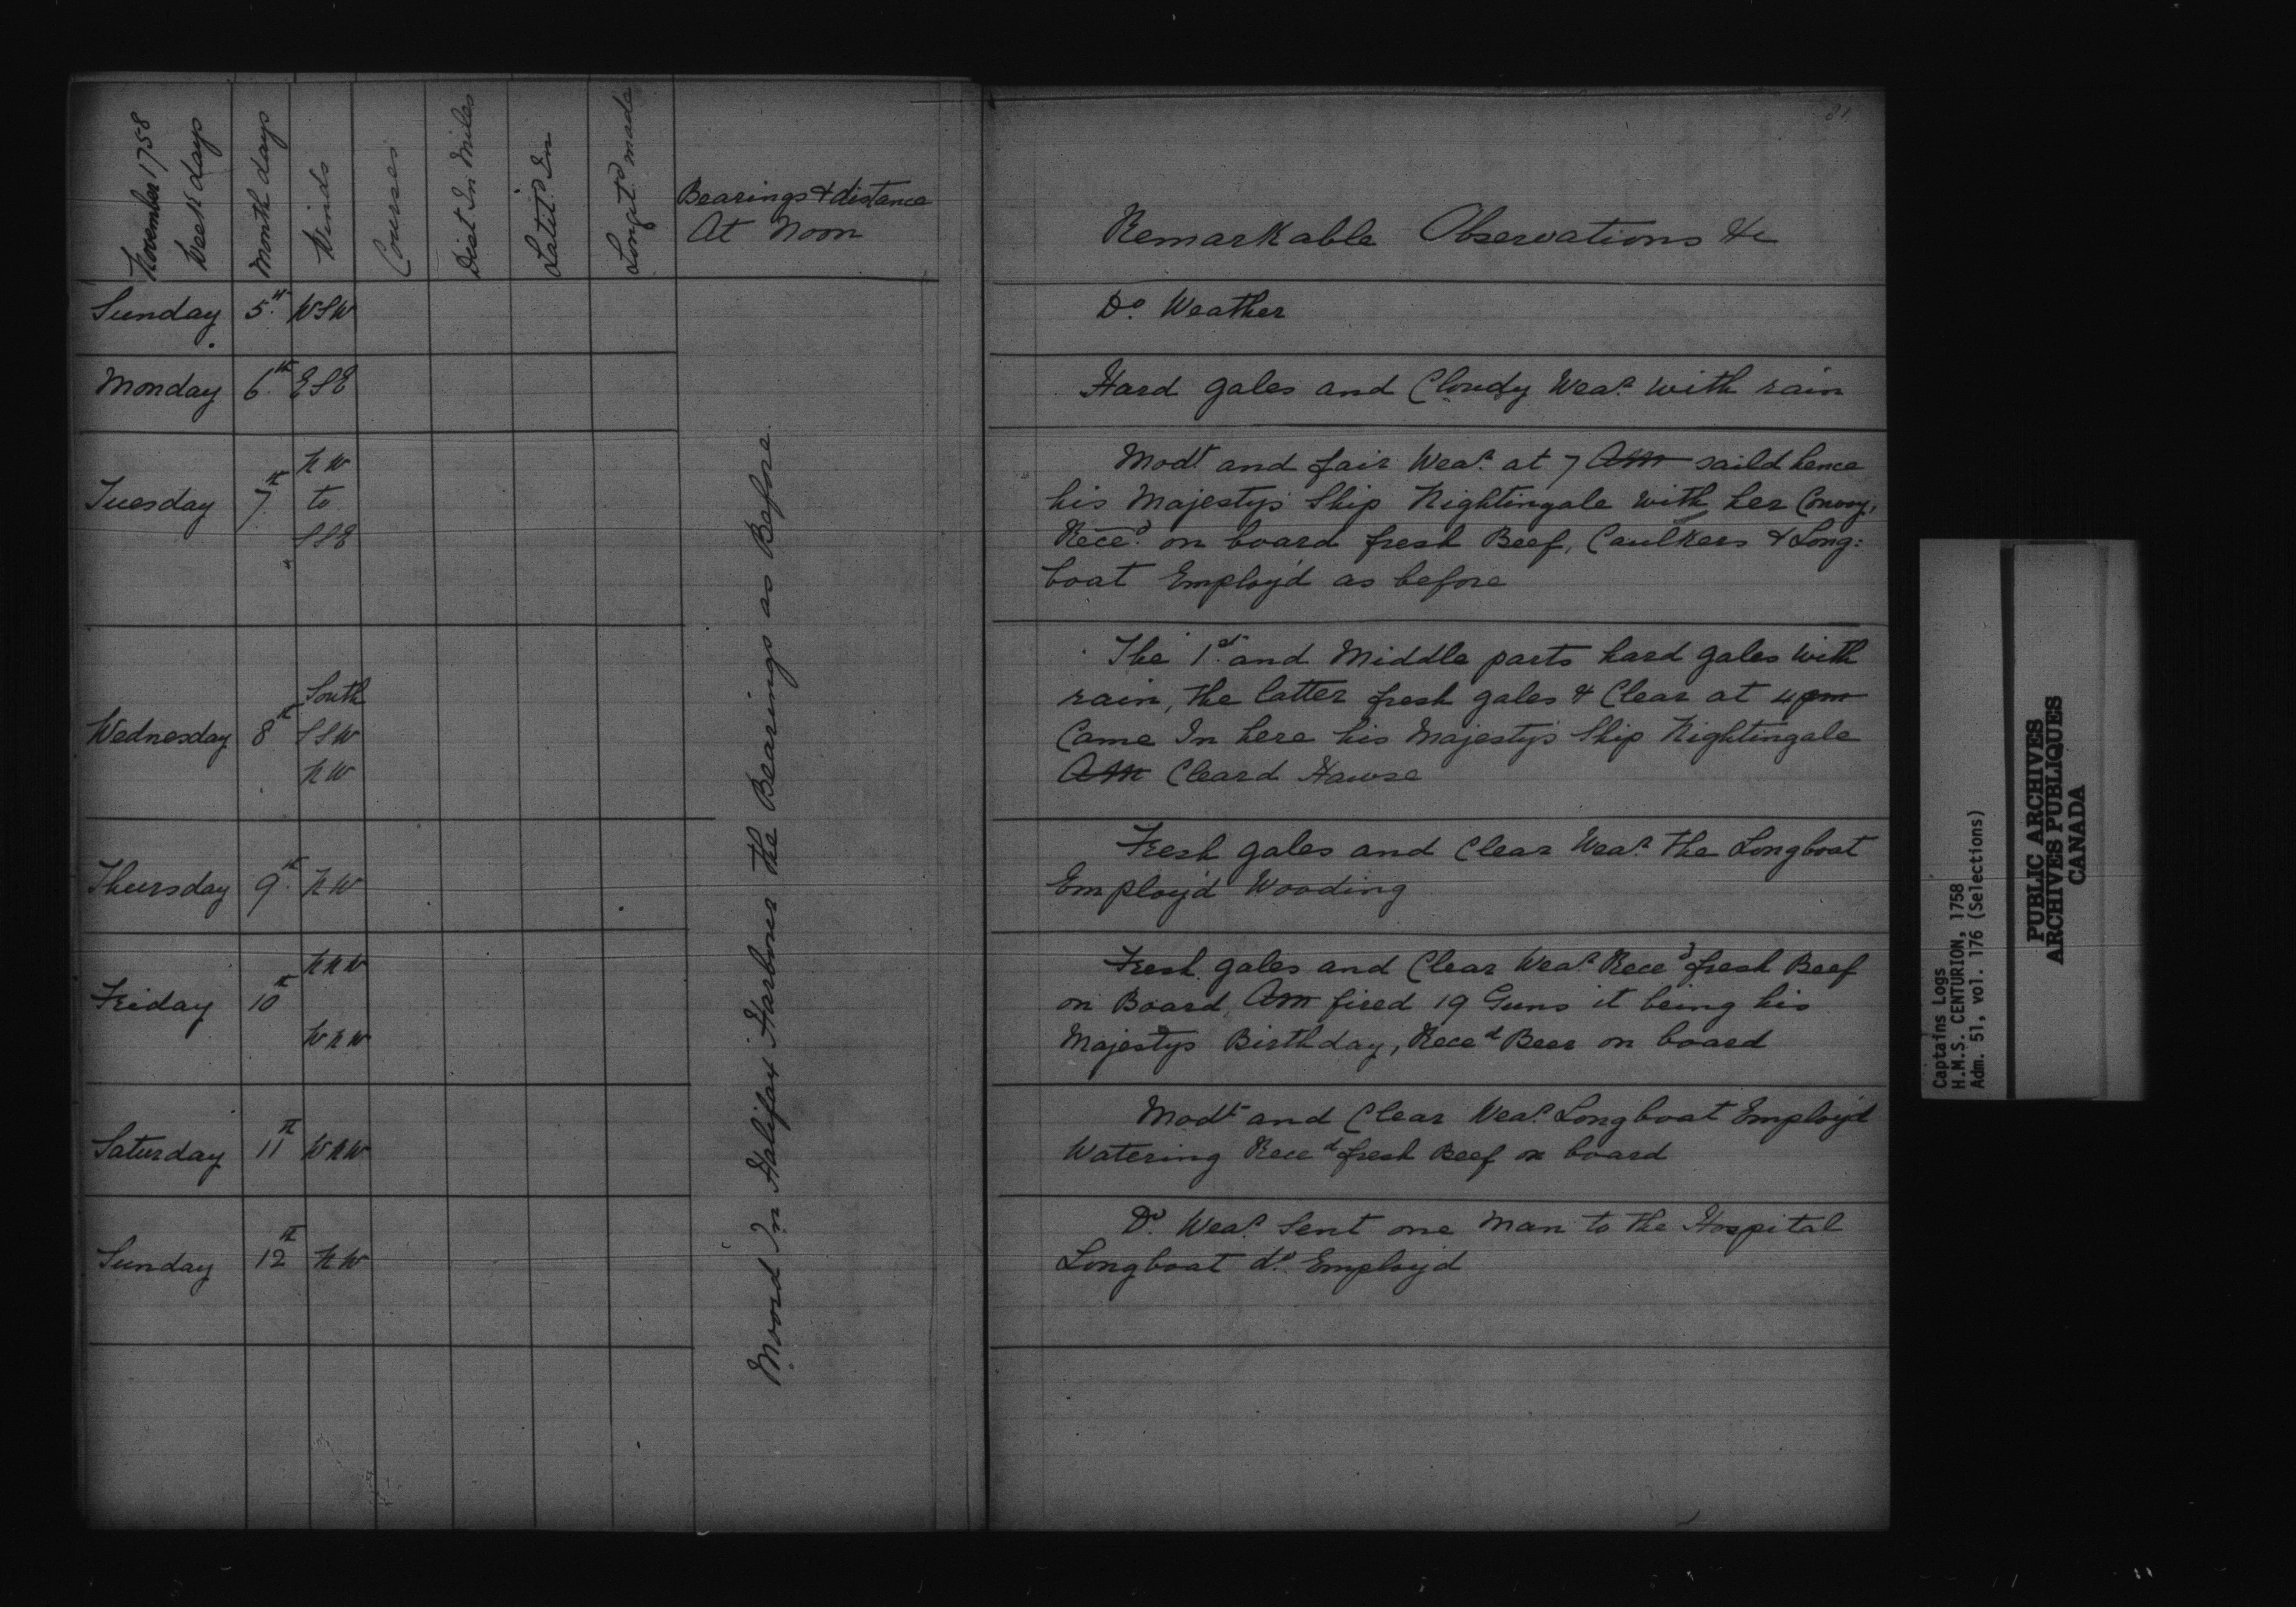 November 1758
Week days
Month days
Winds
Courses
Dist. In Miles
Latitd. In
Longitd. made
Bearings & distance
At Noon
Sunday 5th WSW
Monday 6th ESE
Tuesday 7th NW
to
SSE
Wednesday 8th South
SSW
NW
Thursday 9th NW
Friday 10th NNW
WNW
Saturday 11th WNW
Sunday 12th NW
Moord In Halifax Harbour the Bearings as Before.
81
Remarkable Observations &c
Do. Weather
Hard gales and Cloudy Wear. with rain
Modt and fair Wear. at 7 AM saild hence
his Majestys Ship Nightingale with her Convoy,
Reced. on board fresh Beef, Caulkers & Long:
boat Employ'd as before
The 1st. and Middle parts hard gales with
rain, the latter fresh gales & Clear at 4 pm
Came In here his Majesty's Ship Nightingale
AM Cleard Hawse
Fresh gales and Clear Wear. the Longboat
Employ'd Wooding
Fresh gales and Clear Wear. Reced fresh Beef
on Board, AM fired 19 Guns it being his
Majestys Birthday, Reced Beer on board
Modt and Clear Wear. Longboat Employ'd
Watering Reced fresh Beef on board
Do. Wear. Sent one Man to the Hospital
Longboat do. Employ'd
Captains Logs
H.M.S. CENTURION, 1758
Adm. 51, vol. 176 (Selections)
PUBLIC ARCHIVES
ARCHIVES PUBLIQUES
CANADA